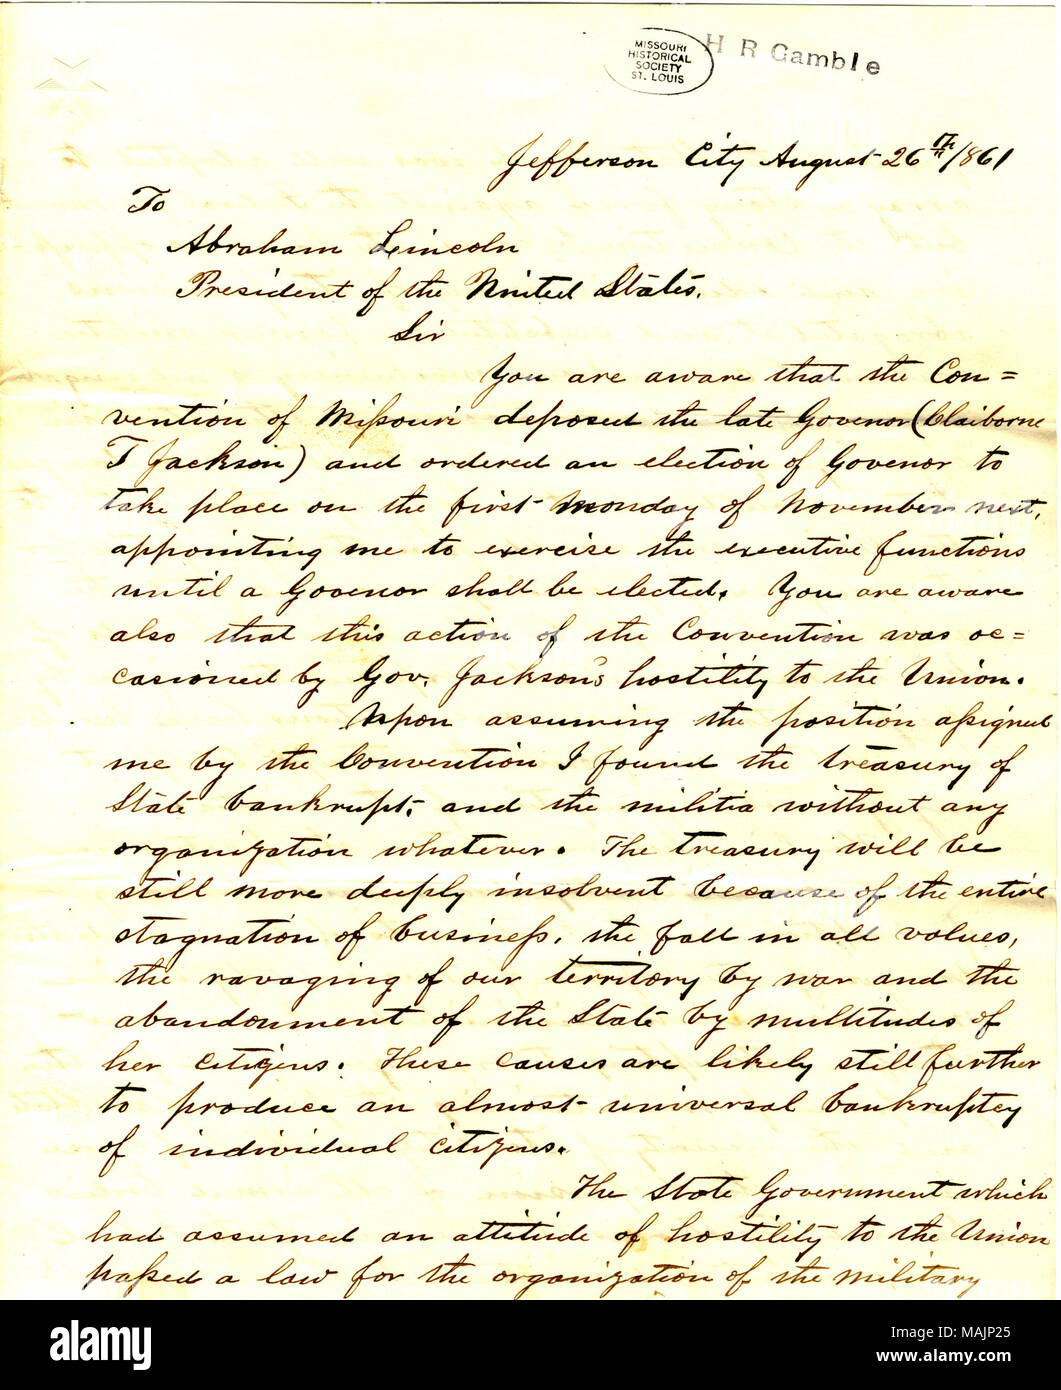 MISSOURI
HISTORICAL
SOCIETY
ST. LOUIS
H R Gamble
Jefferson City August 26th /861
To
Abraham Lincoln
President of the United States.
Sir
You are aware that the Con=
vention of Missouri deposed the late Govenor (Claiborne
T Jackson) and ordered an election of Govenor to
take place on the first Monday of November next,
appointing me to exercise the executive functions
until a Govenor shall be elected. You are aware
also that this action of the Convention was oc=
casioned by Gov. Jackson's hostility to the Union.
Upon assuming the position assigned
me by the Convention I found the treasury of
State bankrupt, and the militia without any
organization whatever. The treasury will be
still more deeply insolvent because of the entire
stagnation of business, the fall in all values,
the ravaging of our territory by war and the
abandonment of the State by multitudes of
her citizens. These causes are likely still further
to produce an almost universal bankruptcy
of individual citizens.
The State Government which
had assumed an attitude of hostility to the Union
passed a law for the organization of the military
a
alamy
Image ID: MAJP25
www.alamy.com